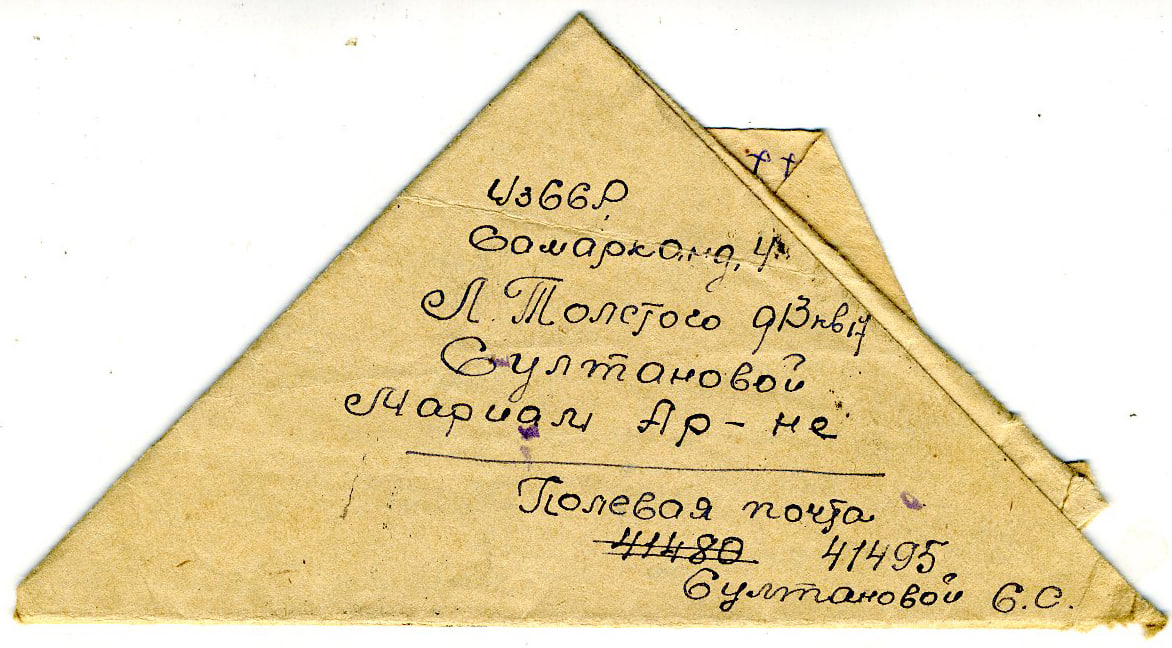 УзССР
Самарканд, ул.
Л. Толстого д 13 кв 17
Султановой
Мариам Ар-не
Полевая почта
41480 41495
Султановой С.С.